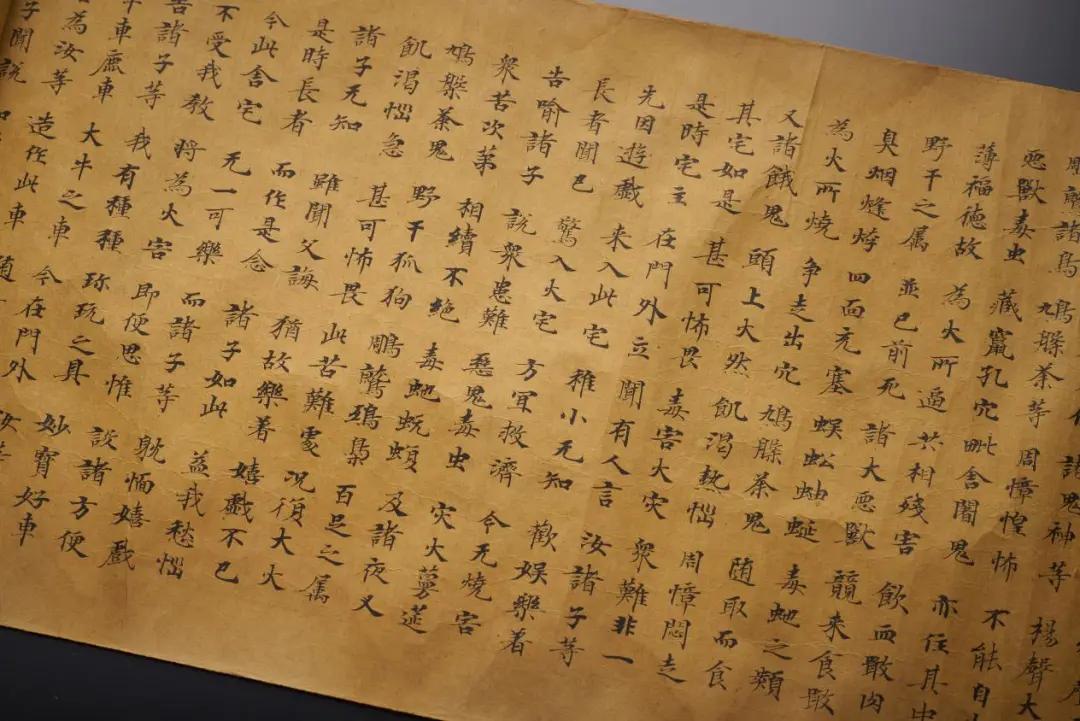 諸鬼神等 揚聲大
鵰鷲諸鳥 鳩槃茶等 周慞惶怖 不能自
惡獸毒虫 藏竄孔穴 毗舍闍鬼 亦住其中
薄福德故 為火所逼 共相殘害 飲血噉肉
野干之属 並已前死 諸大惡獸 競来食噉
臭烟熢㶿 四面充塞 蜈蚣蚰蜒 毒虵之類
為火所燒 争走出穴 鳩槃茶鬼 随取而食
又諸餓鬼 頭上火然 飢渴熱惱 周慞悶走
其宅如是 甚可怖畏 毒害火灾 衆難非一
是時宅主 在門外立 聞有人言 汝諸子等
先因遊戲 来入此宅 稚小无知 歡娛樂着
長者聞已 驚入火宅 方宜救濟 令无燒害
告喻諸子 説衆患難 惡鬼毒虫 灾火蔓莚
衆苦次第 相續不絶 毒虵蚖蝮 及諸夜叉
鳩槃茶鬼 野干狐狗 鵰鷲鵄梟 百足之属
飢渴惱急 甚可怖畏 此苦難處 况復大火
諸子无知 雖聞父誨 猶故樂着 嬉戲不已
是時長者 而作是念 諸子如此 益我愁惱
今此舍宅 无一可樂 而諸子等 躭湎嬉戲
不受我教 将為火害 即便思惟 設諸方便
告諸子等 我有種種 珎玩之具 妙寶好車
車鹿車 大牛之車 今在門外 汝
為汝等 造作此車 随
子聞説